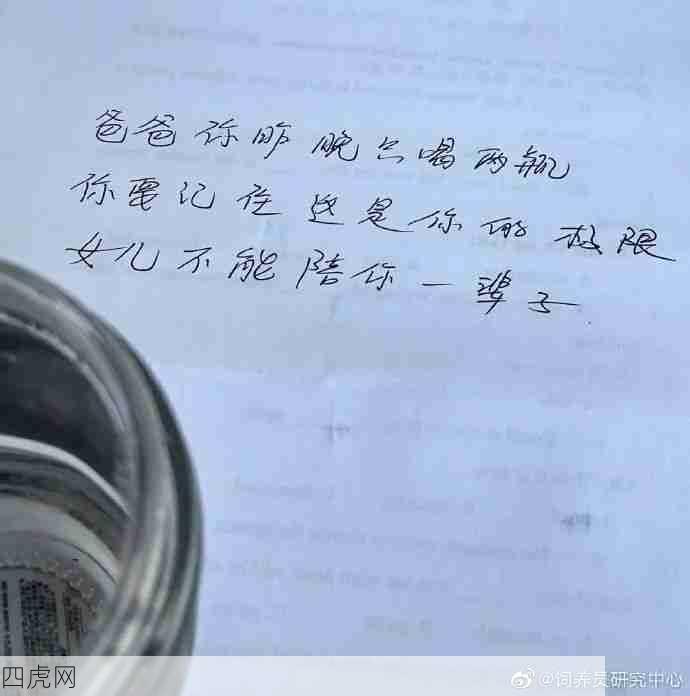 爸爸你昨晚只喝两瓶
你要记住这是你的极限
女儿不能陪你一辈子
四虎网
@饲养员研究中心